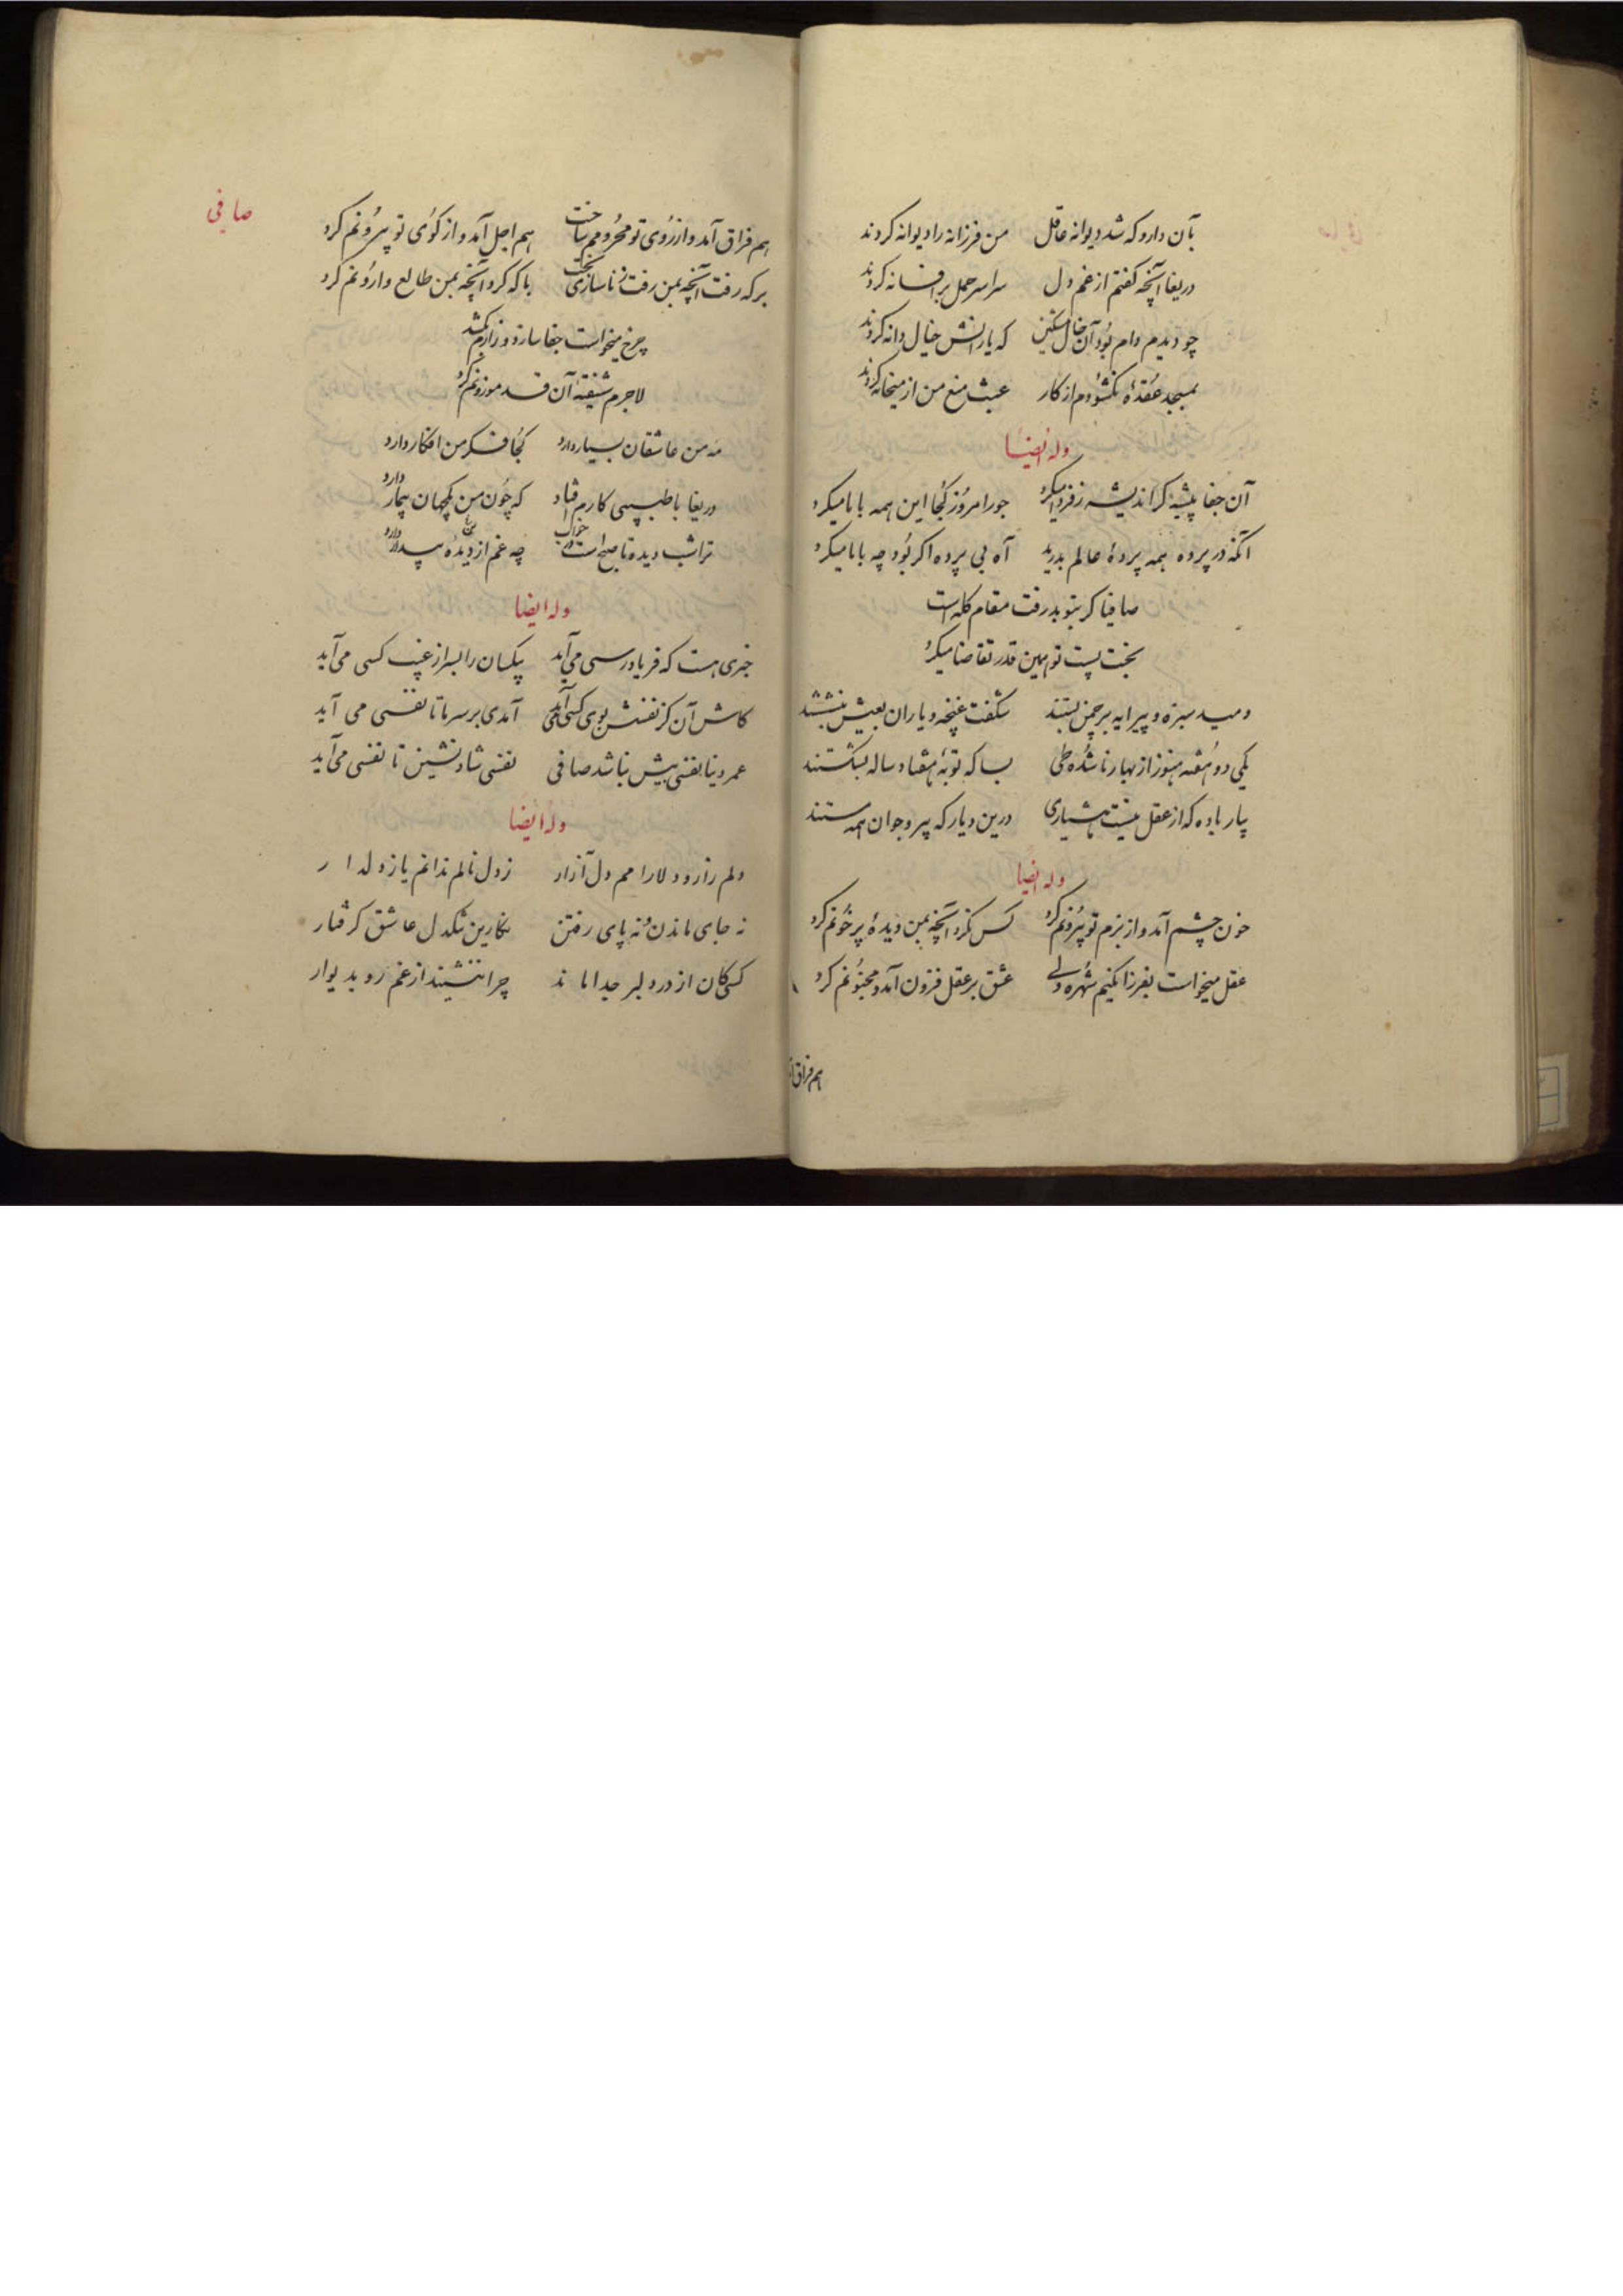 بآن دارو که شد دیوانه عاقل من فرزانه را دیوانه کردند
دریغا آنچه گفتم از غم دل سراسر حمل بر افسانه کردند
چو دیدم دام بود آن خال مشکین که یارانش خیال دانه کردند
بمسجد عقدهٔ نگشودم از کار عبث منع من از میخانه کردند
وله ایضا
آن جفا پیشه گر اندیشه ز فردا میکرد جور امروز کجا این همه با ما میکرد
آنکه در پرده همه پردهٔ عالم بدرید آه بی پرده اگر بود چه با ما میکرد
صافیا گر بتو بد رفت مقام گله است
بخت پست تو همین قدر تقاضا میکرد
دمید سبزه و پیرایه بر چمن بستند شکفت غنچه و یاران بعیش بنشستند
یکی دو هفته هنوز از بهار ناشده طی بسا که توبهٔ هفتاد ساله بشکستند
بیار باده که از عقل نیست هشیاری درین دیار که پیر و جوان همه مستند
وله ایضا
خون چشم آمد و از بزم تو بیرونم کرد کس نکرد آنچه بمن دیدهٔ پر خونم کرد
عقل میخواست بفرزانگیم شهره ولی عشق بر عقل فزون آمد و مجنونم کرد
هم فراق آ
صافی
هم فراق آمد و از روی تو محرومم ساخت هم اجل آمد و از کوی تو بیرونم کرد
بر که رفت آنچه بمن رفت ز ناسازی بخت با که کرد آنچه بمن طالع وارونم کرد
چرخ میخواست جفا سازد و زارم بکشد
لاجرم شیفتهٔ آن قد موزونم کرد
مه من عاشقان بسیار دارد کجا فکر من افکار دارد
دریغا با طبیبی کارم افتاد که چون من یکجهان بیمار دارد
ترا شب دیده تا صبح است در خواب چه غم از دیدهٔ بیدار دارد
وله ایضا
خبری هست که فریادرسی می‌آید بیکسان را بسر از غیب کسی می‌آید
کاش آن کز نفسش بوی کسی می‌آید آمدی بر سر ما تا نفسی می آید
عمر دنیا نفسی بیش نباشد صافی نفسی شاد نشین تا نفسی می‌آید
وله ایضا
دلم زار و دلارامم دل آزار ز دل نالم ندانم یا ز دلدار
نه جای ماندن و نه پای رفتن نگارین سنگدل عاشق گرفتار
کسی کان از در دلبر جدا ماند چرا ننشیند از غم رو بدیوار